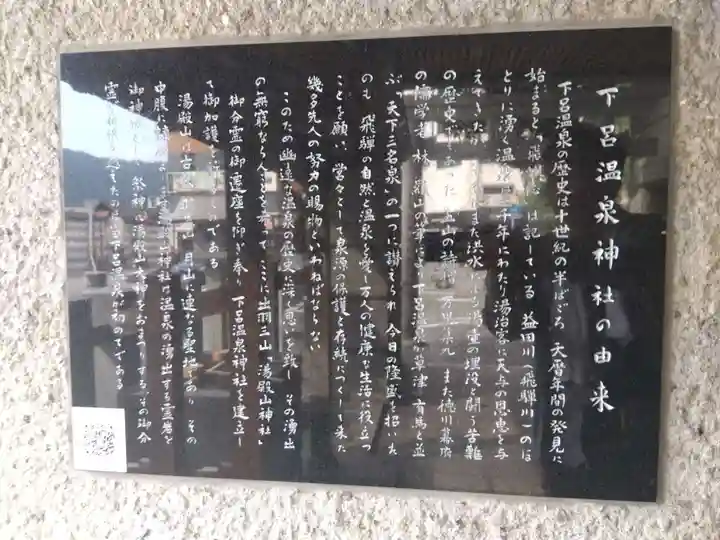 下呂温泉神社の由来
下呂温泉の歴史は十世紀の半ばごろ 天暦年間の発見に
始まると「飛騨 」は記している 益田川(飛騨川)のほ
とりに湧く温泉は 千年にわたり湯治客に天与の恩恵を与
えてきたが また洪水による 埋没と闘う苦難
の歴史で あった 五山の詩僧 万里集九 また徳川幕府
の儒学者 林羅山の筆 下呂温泉が草津 有馬と並
ぶ「天下三名泉」の一つに讃えられ 今日の隆盛を招いた
のも 飛騨の自然と温泉を愛し 万人の健康な生活に役立つ
ことを願い 営々として泉源の保護と存続につくして来た
幾多先人の努力の賜物といわねばならない
このため幽遠な温泉の歴史に深く思いを致し その湧出
の無窮ならんことを希って ここに出羽三山「湯殿山神社」
御分霊の御遷座を仰ぎ奉り 下呂温泉神社を建立し
て御加護を ものである
湯殿山は古来 月山に連なる聖地であり その
中腹に 山神社は温泉の湧出する霊岩を
御神 祭神の湯殿山大神をおまつりする その御分
霊 下呂温泉が初めてである